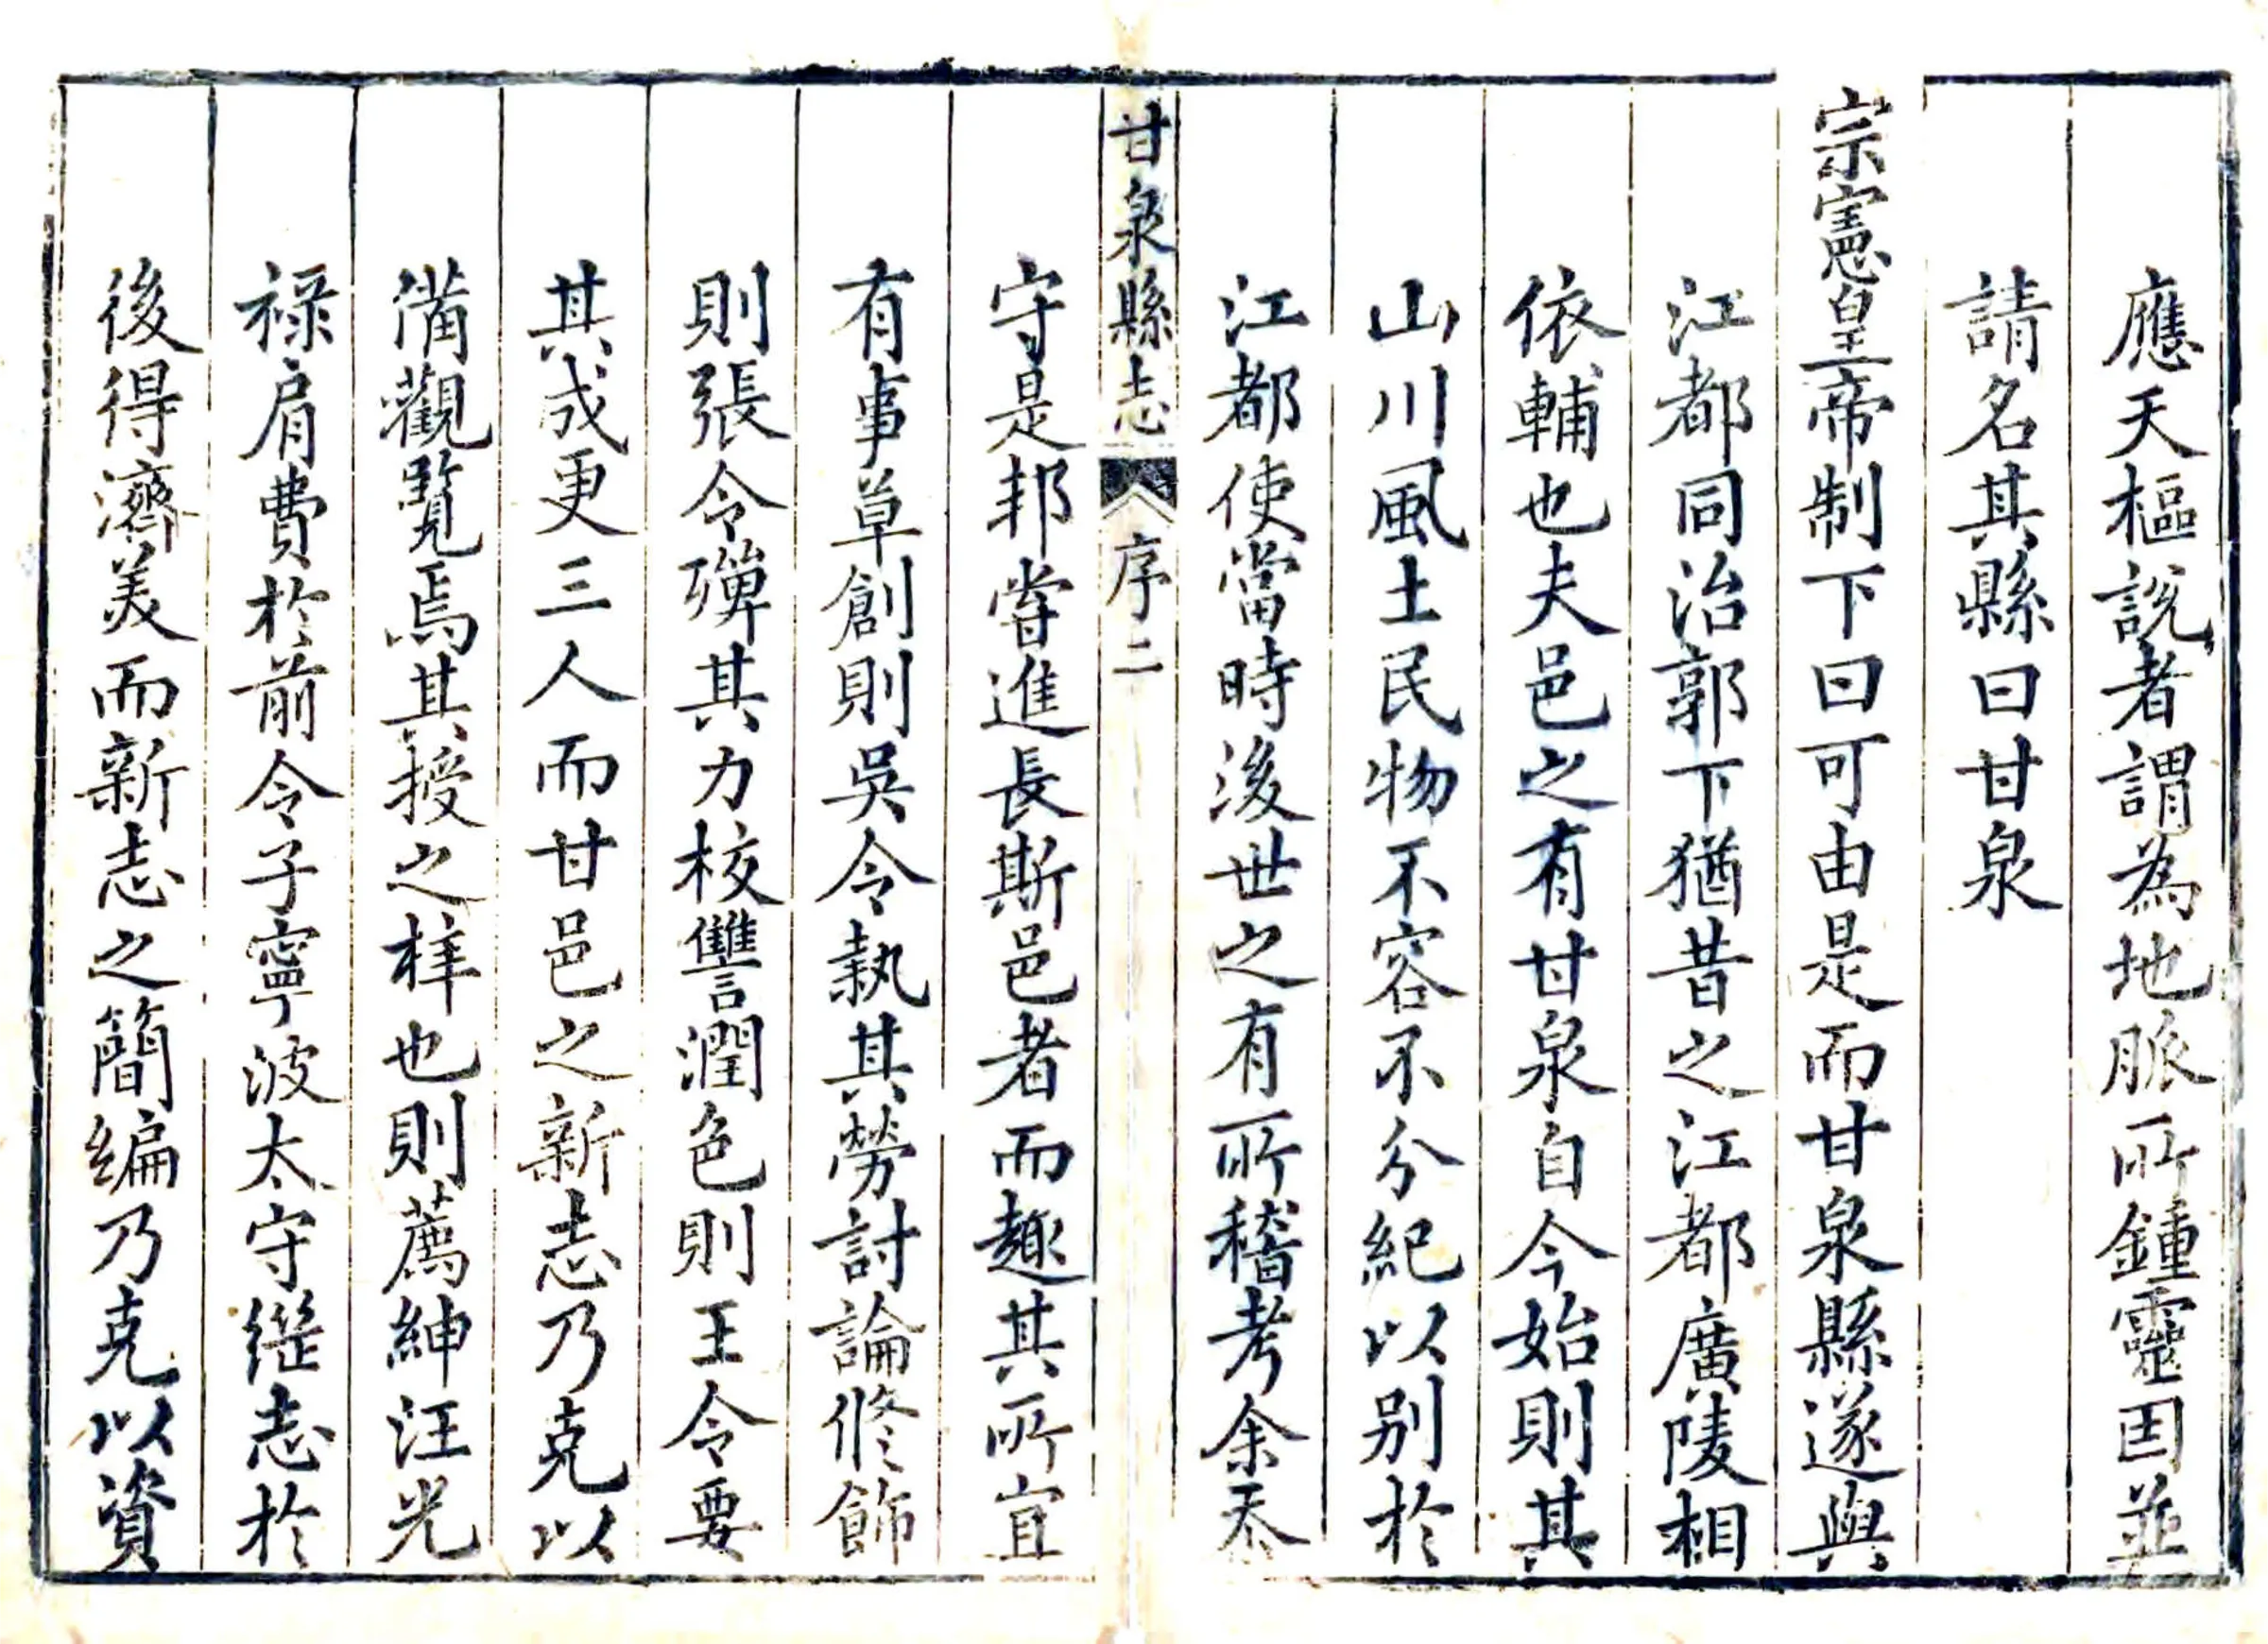 應天樞說者謂為地脈所鍾靈因並
請名其縣曰甘泉
宗憲皇帝制下曰可由是而甘泉縣遂與
江都同治郭下猶昔之江都廣陵相
依輔也夫邑之有甘泉自今始則其
山川風土民物不容不分紀以別於
江都使當時後世之有所稽考余忝
甘泉縣志
序二
守是邦嘗進長斯邑者而趣其所宜
有事草創則吳令執其勞討論修飾
則張令殫其力校讐潤色則王令要
其成更三人而甘邑之新志乃克以
備觀覽焉其授之梓也則薦紳汪光
祿肩費於前令子寧波太守繼志於
後得濟美而新志之簡編乃克以資